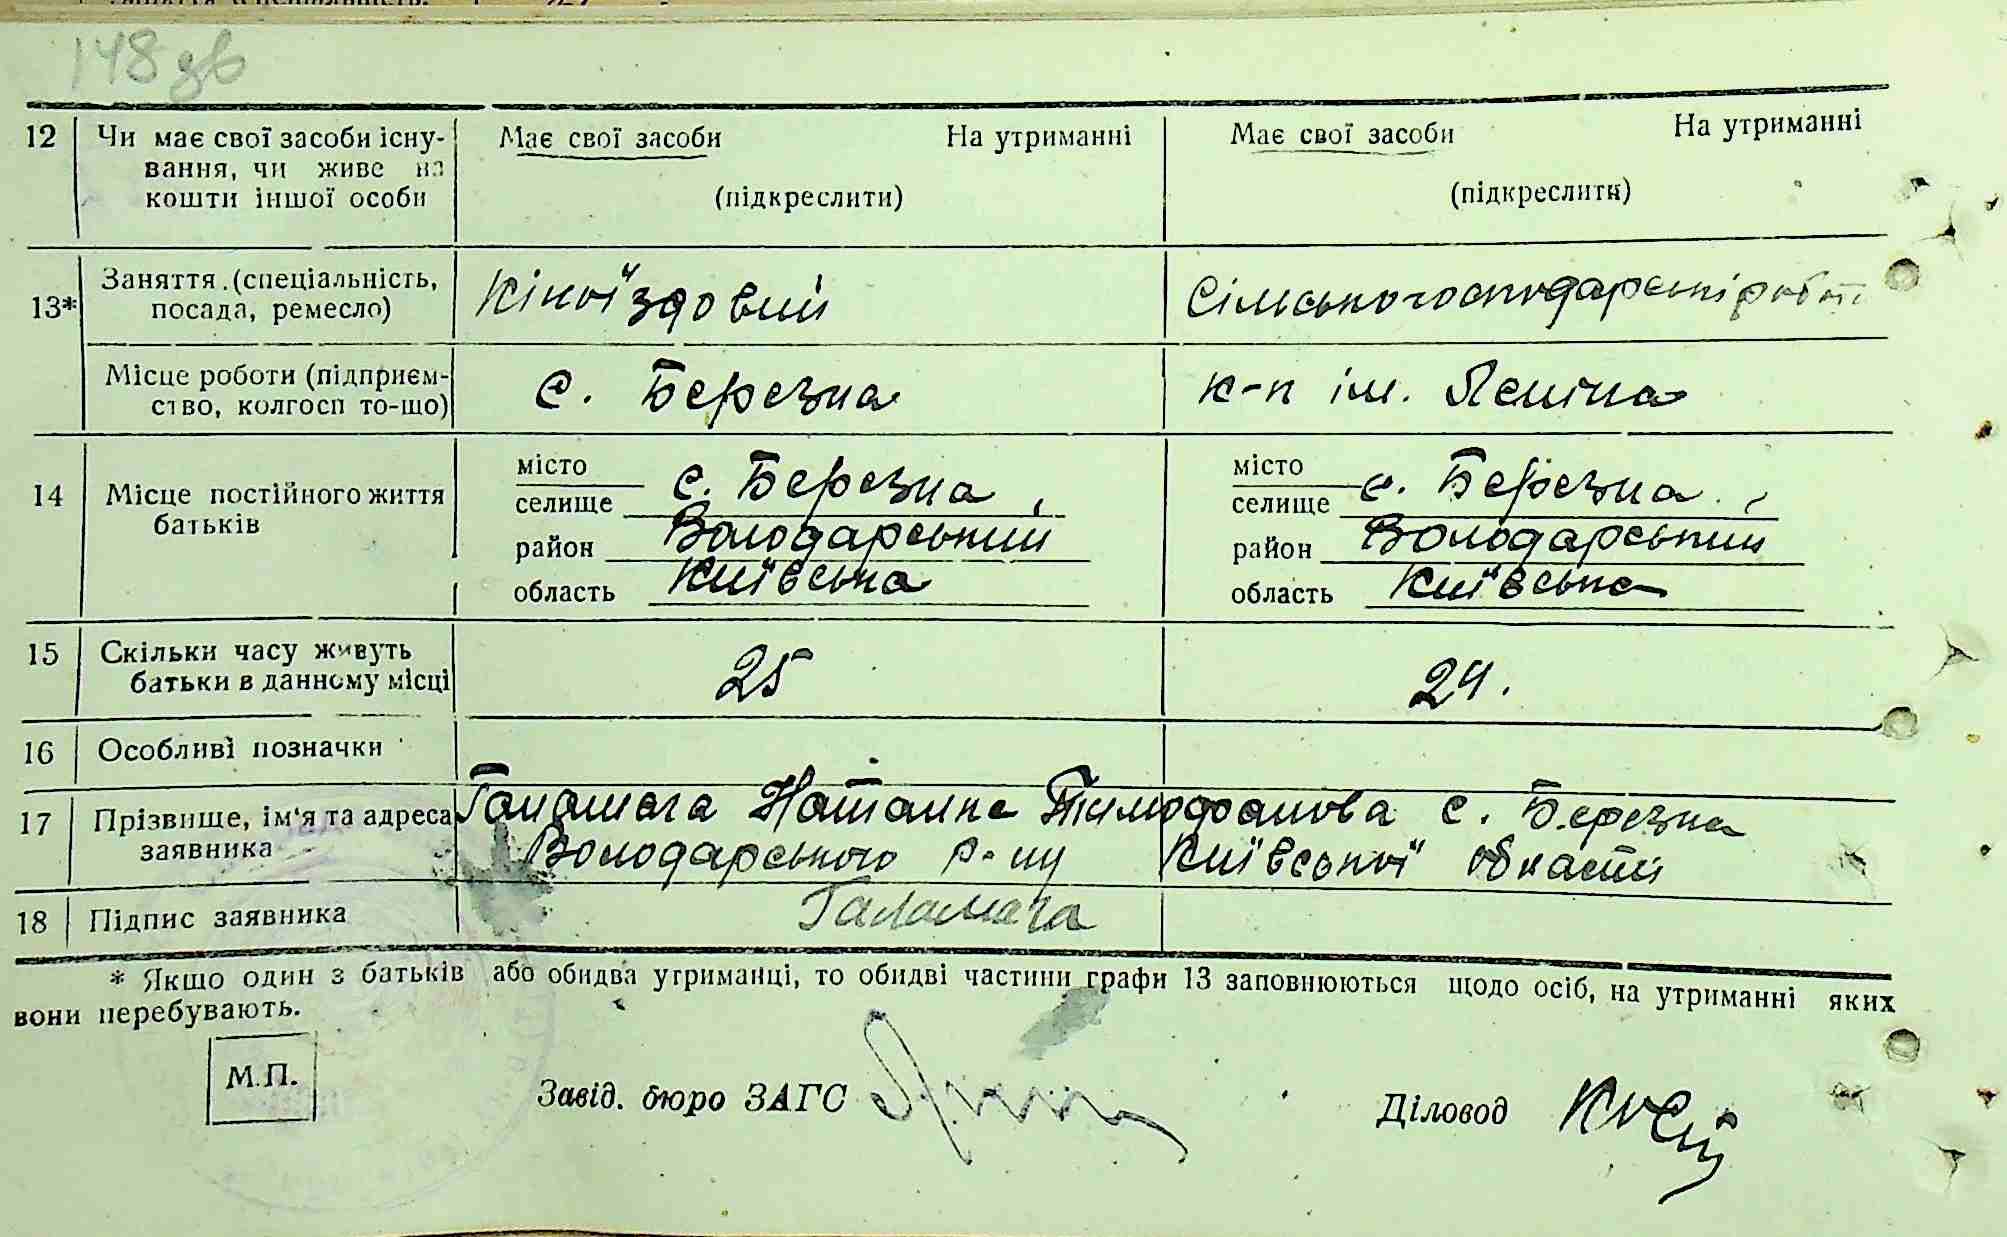 148 зв
12 Чи має свої засоби існу- Має свої засоби На утриманні Має свої засоби На утриманні
вання, чи живе на
кошти іншої особи (підкреслити) (підкреслити)
13* Заняття (спеціальність, Кіноїздовий Сільськогосподарські роботи
посада, ремесло)
Місце роботи (підприєм- с. Березна к-п ім. Леніна
ство, колгосп то-що)
14 Місце постійного життя батьків
місто
селище с. Березна,
район Володарський
область Київська
місто
селище с. Березна,
район Володарський
область Київська
15 Скільки часу живуть 25 24.
батьки в данному місці
16 Особливі позначки
17 Прізвище, ім'я та адреса Галамага Наталка Тимофанова с. Березна
заявника Володарського р-ну Київської области
18 Підпис заявника Галамага
* Якщо один з батьків або обидва утриманці, то обидві частини графи 13 заповнюються щодо осіб, на утриманні яких
вони перебувають.
М.П.
Завід. бюро ЗАГС
Діловод